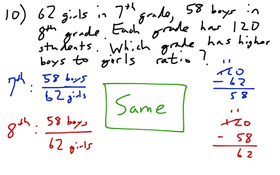 10) 62 girls in 7th grade, 58 boys in
8th grade. Each grade has 120
students. Which grade has higher
boys to girls ratio?
7th: 58 boys
62 girls
Same
120
- 62
58
8th: 58 boys
62 girls
120
- 58
62